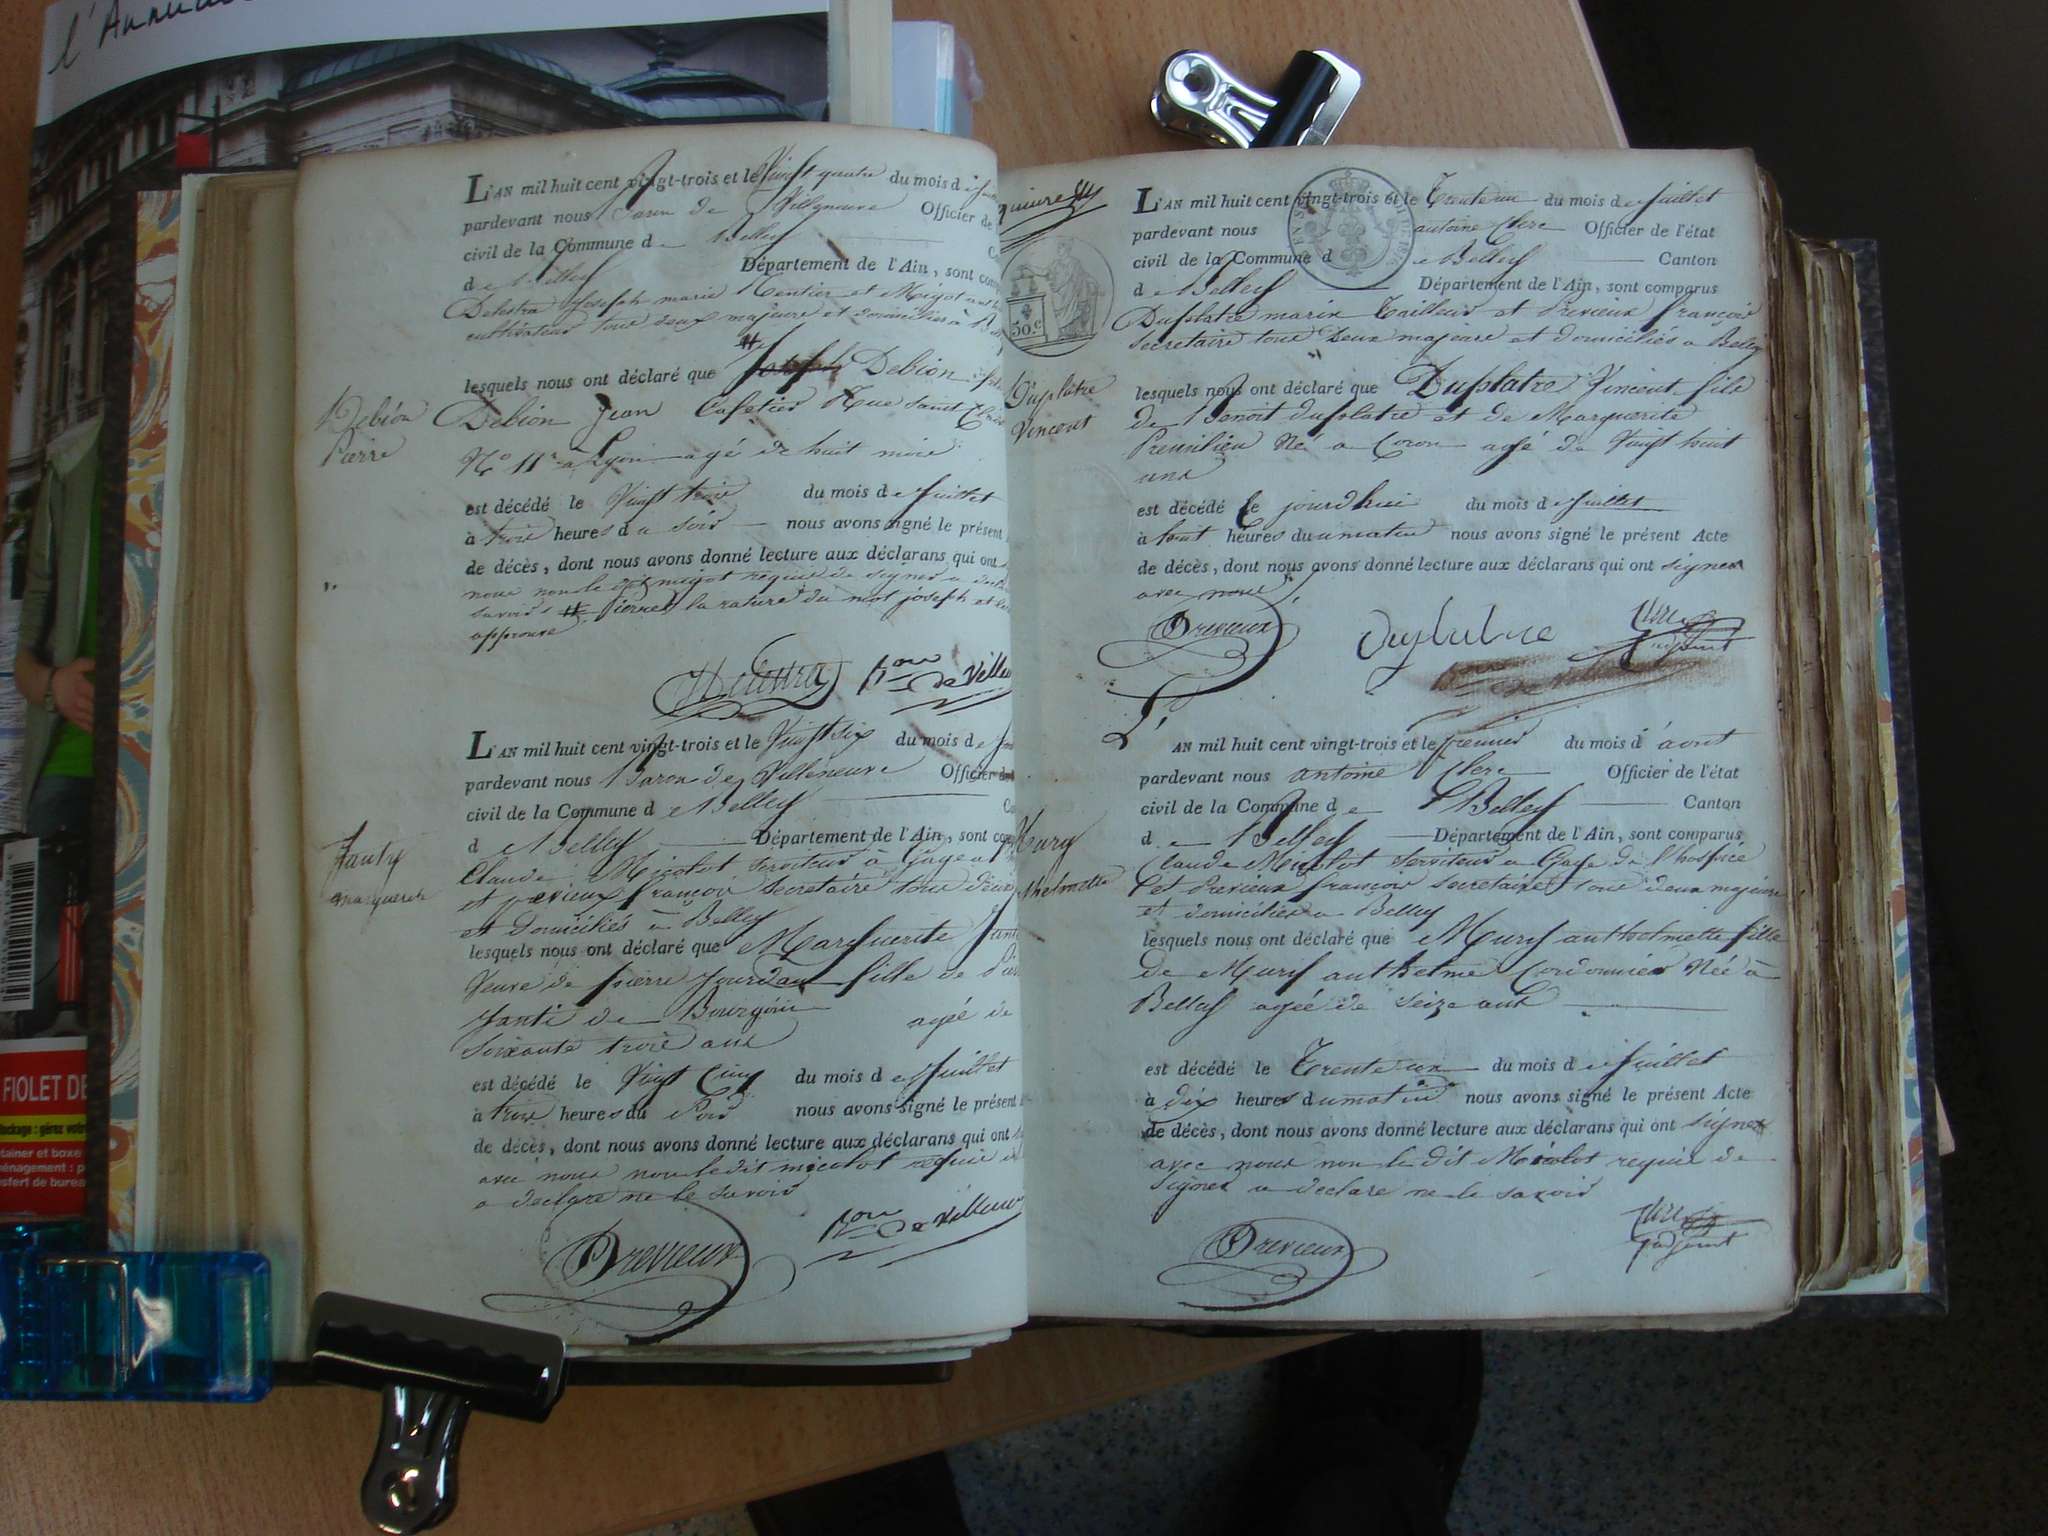 l'Annua
L'AN mil huit cent vingt-trois et le Vingt quatre du mois de
pardevant nous Baron de Villeneuve Officier de
civil de la Commune de Belley
de Belley Département de l'Ain, sont comp
Delestra Joseph marie Rentier et Migot
cultivateur tous deux majeure et domiciliés à B
lesquels nous ont déclaré que Joseph Debion
Debion Jean Cafetier Rue Saint
No 11 à Lyon agé de huit mois
est décédé le Vingt trois du mois de Juillet
à trois heures du soir nous avons signé le présent
de décès, dont nous avons donné lecture aux déclarans qui ont
nous non le dit migot requis de signer a
savoir # pierre la rature du mot joseph et
approuvé
Debion
Pierre
Bon de Villeneu
L'AN mil huit cent vingt-trois et le Vingt six du mois de
pardevant nous Baron de Villeneuve Officier de
civil de la Commune de Belley
de Belley Département de l'Ain, sont com
Claude Micolot serviteur à Gage
et previeux françois secretaire tous deux
et Domiciliés à Belley
lesquels nous ont déclaré que Marguerite
Veuve de pierre Jourdan fille de
Janti de Bourgoin agée de
Soixante trois ans
est décédé le Vingt Cinq du mois de Juillet
à trois heures du Soir nous avons signé le présent
de décès, dont nous avons donné lecture aux déclarans qui ont
avec nous non le dit micolot requis
a declare ne le savoir
Janty
marguerite
Previeux
Bon de Villeneuv
50.c
L'AN mil huit cent vingt-trois et le Trente un du mois de Juillet
pardevant nous antoine Clerc Officier de l'état
civil de la Commune de Belley Canton
de Belley Département de l'Ain, sont comparus
Duplatre marin Tailleur et Previeux françois
Secretaire tous deux majeure et domiciliés a Belley
lesquels nous ont déclaré que Duplatre Vincent fils
de Benoit duplatre et de Marguerite
Né a Coron agé de Vingt huit
ans
est décédé le jourdhui du mois de Juillet
à huit heures du matin nous avons signé le présent Acte
de décès, dont nous avons donné lecture aux déclarans qui ont signer
avec nous
Duplâtre
Vincent
Previeux Duplatre Clerc
adjoint
L'AN mil huit cent vingt-trois et le premier du mois d'août
pardevant nous antoine Clerc Officier de l'état
civil de la Commune de Belley Canton
de Belley Département de l'Ain, sont comparus
Claude Micolot serviteur a Gage de l'hospice
et Previeux françois secretaire tous deux majeure
et domiciliés a Belley
lesquels nous ont déclaré que Mury anthelmette fille
de Mury anthelme Cordonnier Née à
Belley agée de seize ans
est décédé le Trente un du mois de Juillet
à dix heures du matin nous avons signé le présent Acte
de décès, dont nous avons donné lecture aux déclarans qui ont signer
avec nous non le dit Micolot requis de
signer a declare ne le savoir
Mury
thelmette
Previeux
Clerc
adjoint
FIOLET DE
tockage : gérez votre
tainer et boxe
ménagement : p
nsfert de burea